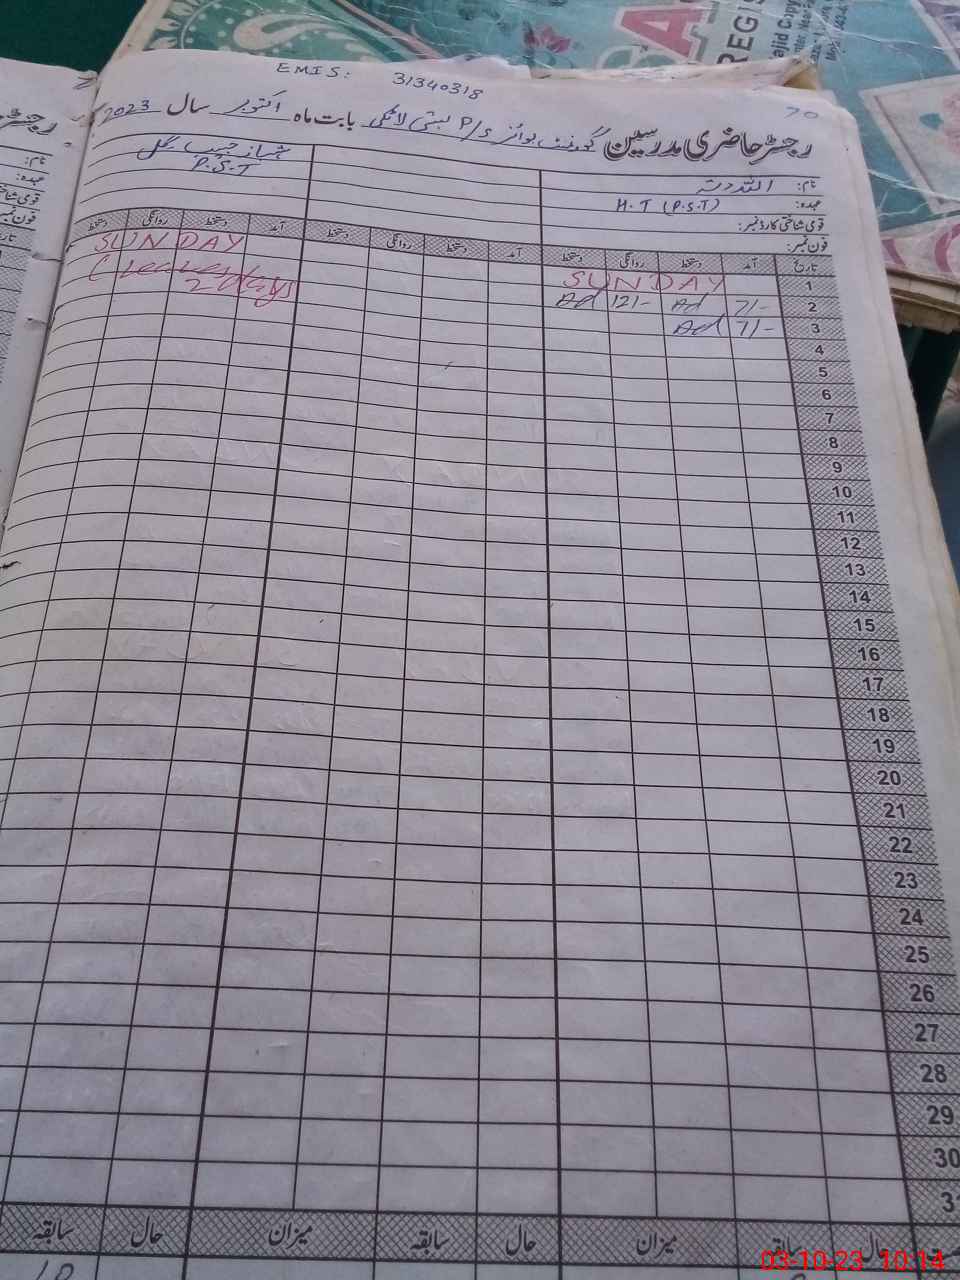 EMIS: 31340318
70
رجسٹر حاضری مدرسین گورنمنٹ بوائز P/S بستی لانگی بابت ماہ اکتوبر سال 2023
نام: اللہ دتہ
عہدہ: H.T (P.S.T)
قومی شناختی کارڈ نمبر:
فون نمبر:
P.S.T
تاریخ آمد دستخط روانگی دستخط آمد دستخط روانگی دستخط آمد دستخط روانگی دستخط
1 SUNDAY SUNDAY
2 7/- Ad 12/- Ad C leave 2 days
3 7/- Ad
4
5
6
7
8
9
10
11
12
13
14
15
16
17
18
19
20
21
22
23
24
25
26
27
28
29
30
31
حال سابقہ میزان حال سابقہ میزان حال سابقہ
REGIS
ajid Copy
03-10-23 10:14